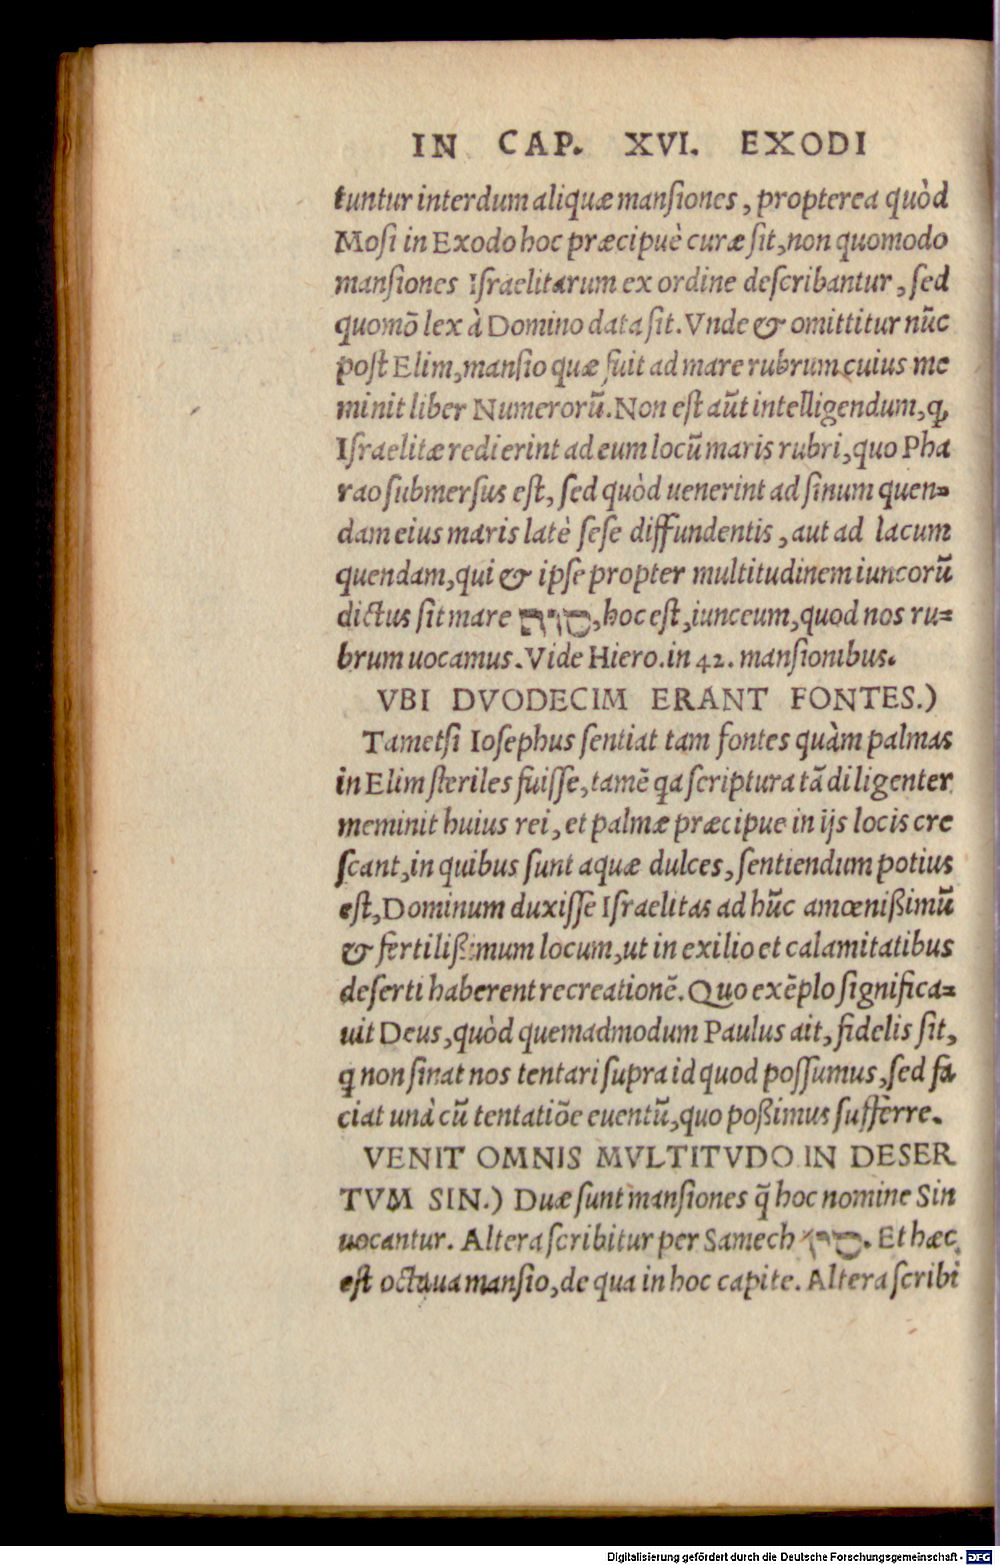 IN CAP. XVI. EXODI
tuntur interdum aliquæ mansiones, propterea quòd
Mosi in Exodo hoc præcipuè curæ sit, non quomodo
mansiones Israelitarum ex ordine describantur, sed
quomō lex à Domino data sit. Vnde & omittitur nūc
post Elim, mansio quæ fuit ad mare rubrum cuius me
minit liber Numerorū. Non est aūt intelligendum, ꝙ
Israelitæ redierint ad eum locū maris rubri, quo Pha
rao submersus est, sed quòd uenerint ad sinum quen=
dam eius maris latè sese diffundentis, aut ad lacum
quendam, qui & ipse propter multitudinem iuncorū
dictus sit mare סוף, hoc est, iunceum, quod nos ru=
brum uocamus. Vide Hiero. in 42. mansionibus.
VBI DVODECIM ERANT FONTES.)
Tametsi Iosephus sentiat tam fontes quàm palmas
in Elim steriles fuisse, tamē qa scriptura tā diligenter
meminit huius rei, et palmæ præcipue in ijs locis cre
scant, in quibus sunt aquæ dulces, sentiendum potius
est, Dominum duxisse Israelitas ad hūc amœnißimū
& fertilißimum locum, ut in exilio et calamitatibus
deserti haberent recreationē. Quo exēplo significa=
uit Deus, quòd quemadmodum Paulus ait, fidelis sit,
q non sinat nos tentari supra id quod possumus, sed fa
ciat unà cū tentatiōe euentū, quo poßimus sufferre.
VENIT OMNIS MVLTITVDO IN DESER
TVM SIN.) Duæ sunt mansiones q̄ hoc nomine Sin
uocantur. Altera scribitur per Samech סין. Et hæc
est octaua mansio, de qua in hoc capite. Altera scribi
Digitalisierung gefördert durch die Deutsche Forschungsgemeinschaft - DFG